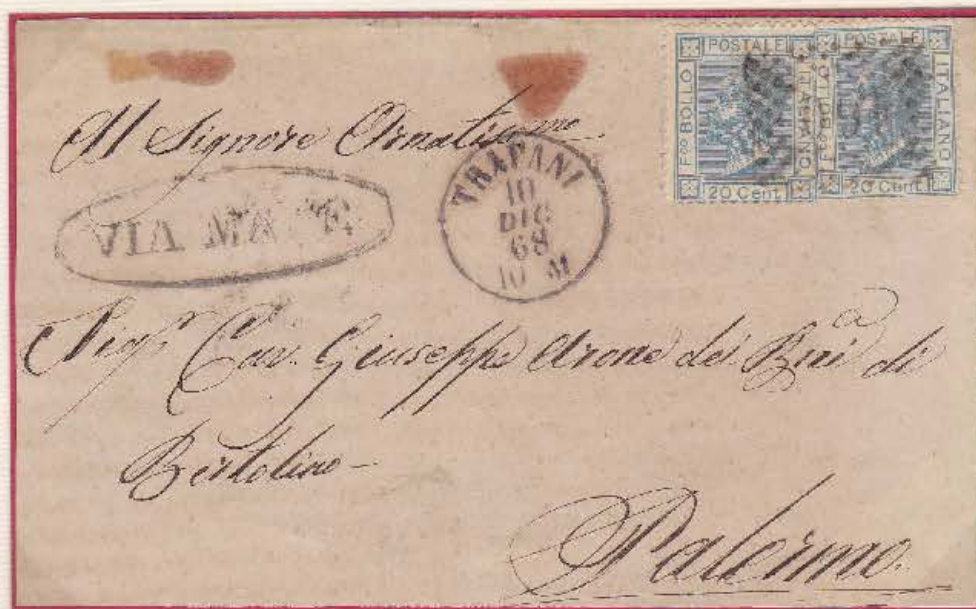 POSTALE
Fco BOLLO
ITALIANO
20 Cent
POSTALE
Fco BOLLO
ITALIANO
20 Cent
Al Signore Ornatissmo
VIA
TRAPANI
10
DIC
68
10 M
Sigr Cav. Giuseppe Arone dei Bni di
Bertolino -
Palermo.